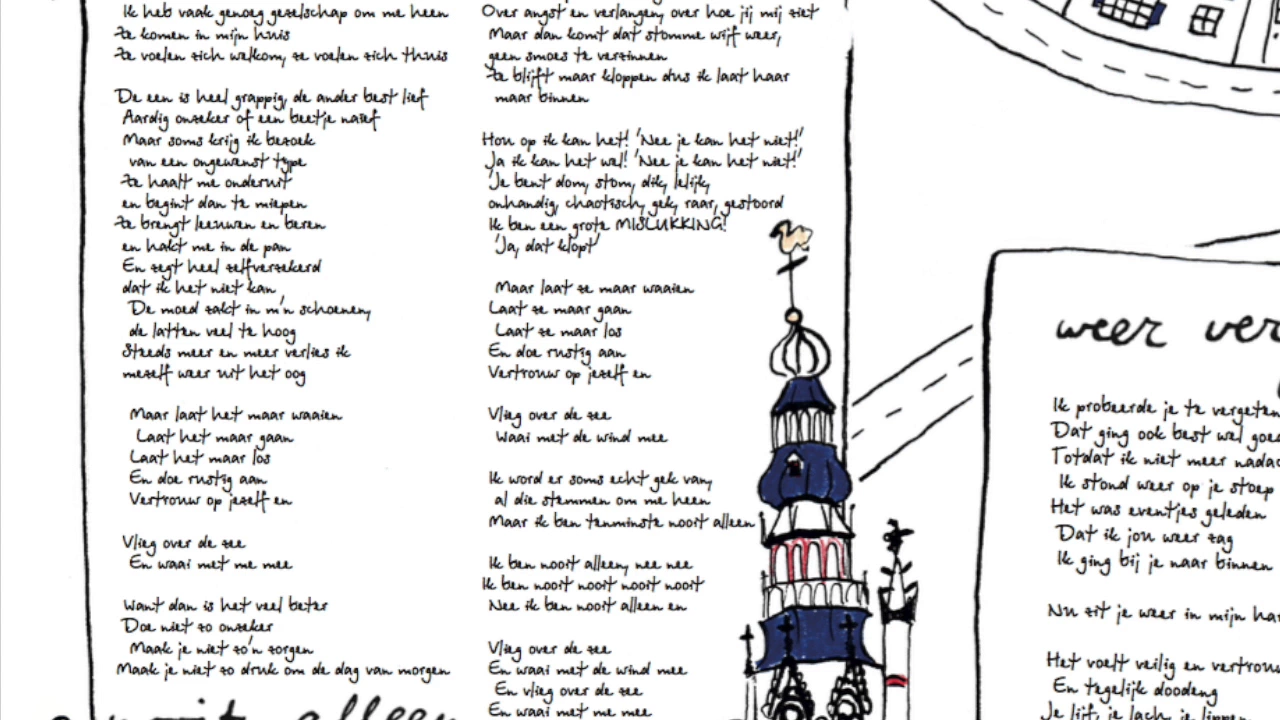 Ik heb vaak genoeg gezelschap om me heen
Ze komen in mijn huis
Ze voelen zich welkom, ze voelen zich thuis
De een is heel grappig, de ander best lief
Aardig onzeker of een beetje naïef
Maar soms krijg ik bezoek
van een ongewenst type
Ze haalt me onderuit
en begint dan te miepen
Ze brengt leeuwen en beren
en hakt me in de pan
En zegt heel zelfverzekerd
dat ik het niet kan
De moed zakt in m'n schoenen,
de latten veel te hoog
Steeds meer en meer verlies ik
mezelf weer uit het oog
Maar laat het maar waaien
Laat het maar gaan
Laat het maar los
En doe rustig aan
Vertrouw op jezelf en
Vlieg over de zee
En waai met me mee
Want dan is het veel beter
Doe niet zo onzeker
Maak je niet zo'n zorgen
Maak je niet zo druk om de dag van morgen
nooit alleen
Over angst en verlangen, over hoe jij mij ziet
Maar dan komt dat stomme wijf weer,
geen smoes te verzinnen
Ze blijft maar kloppen dus ik laat haar
maar binnen
Hou op ik kan het! 'Nee je kan het niet!'
Ja ik kan het wel! 'Nee je kan het niet!'
'Je bent dom, stom, dik, lelijk,
onhandig, chaotisch, gek, raar, gestoord
Ik ben een grote MISLUKKING!
'Ja, dat klopt'
Maar laat ze maar waaien
Laat ze maar gaan
Laat ze maar los
En doe rustig aan
Vertrouw op jezelf en
Vlieg over de zee
Waai met de wind mee
Ik word er soms echt gek van,
al die stemmen om me heen
Maar ik ben tenminste nooit alleen
Ik ben nooit alleen, nee nee
Ik ben nooit nooit nooit nooit
Nee ik ben nooit alleen en
Vlieg over de zee
En waai met de wind mee
En vlieg over de zee
En waai met me mee
weer ver
Ik probeerde je te vergeten
Dat ging ook best wel goe
Totdat ik niet meer nada
Ik stond weer op je stoep
Het was eventjes geleden
Dat ik jou weer zag
Ik ging bij je naar binnen
Nu zit je weer in mijn ha
Het voelt veilig en vertrou
En tegelijk doodeng
Je lijf, je lach, je lippen